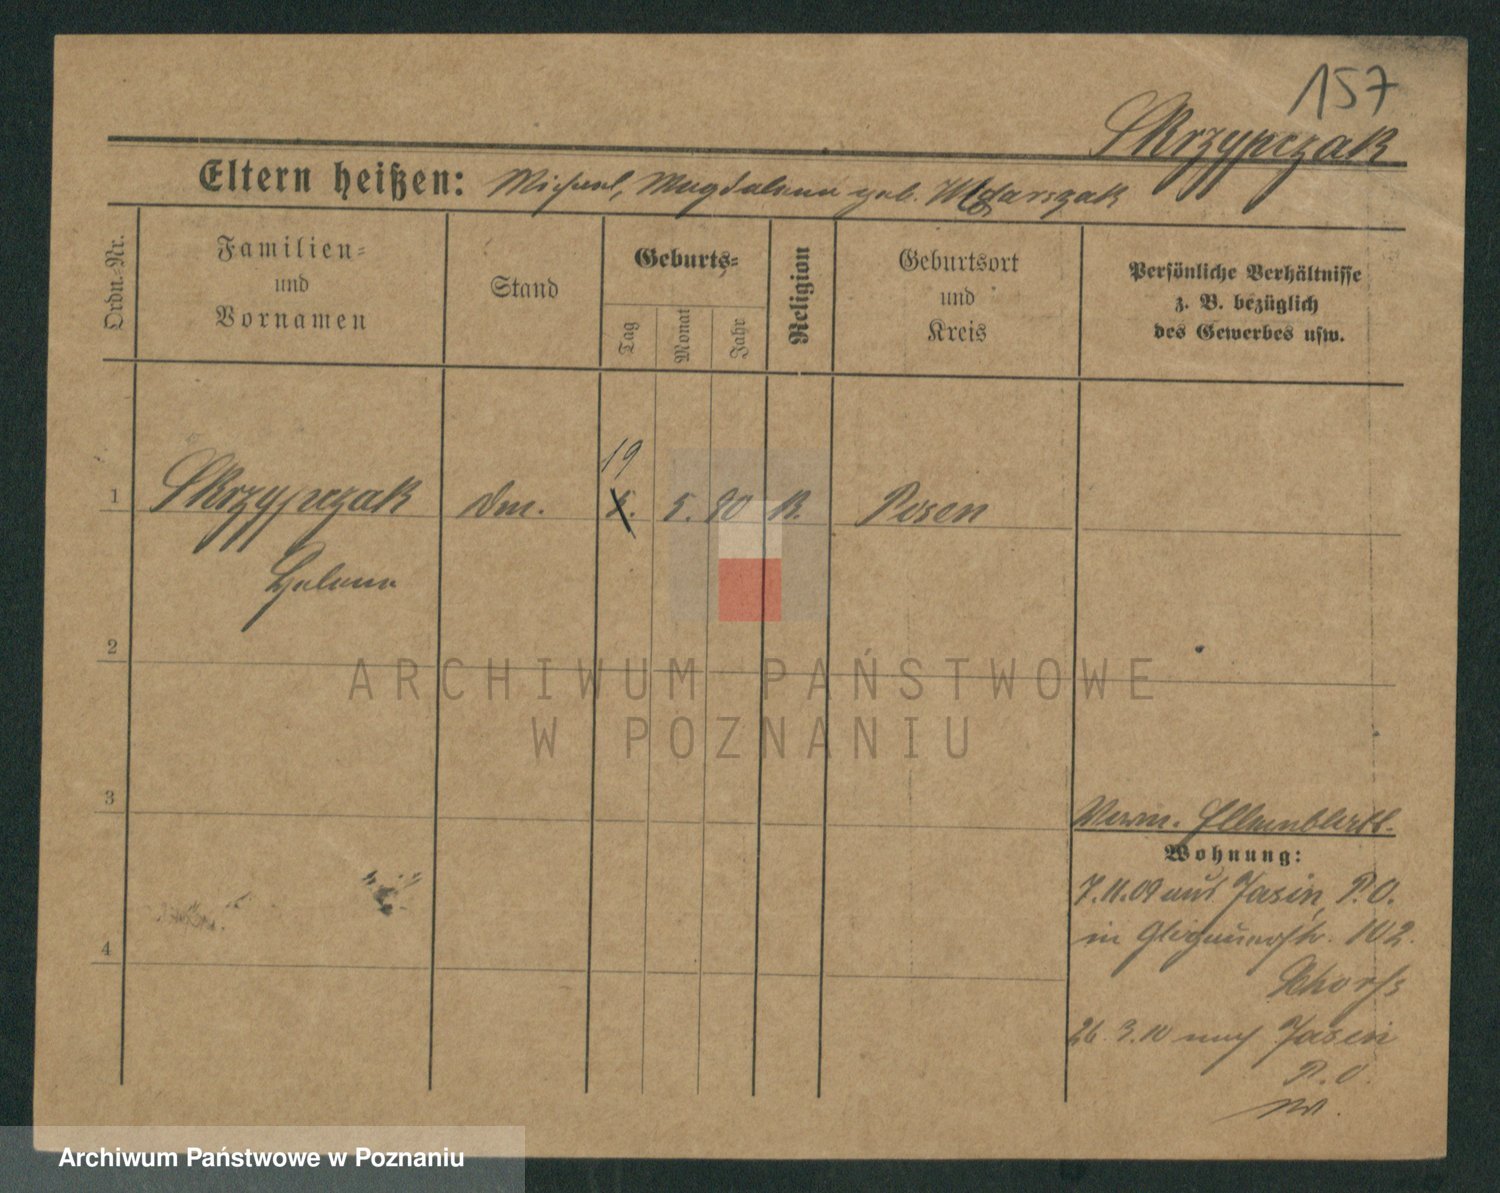 157
Skrzypczak
Eltern heißen: Michael, Magdalena geb.
Ordn.-Nr.
Familien-
und
Vornamen
Stand
Geburts-
Tag
Monat
Jahr
Religion
Geburtsort
und
Kreis
Persönliche Verhältnisse
z. B. bezüglich
des Gewerbes usw.
19
1 Skrzypczak Dm. 5. 90 K. Posen
Helena
2
3
4
Wohnung:
7.11.09 aus Jasin, P.O.
in 102.
26.3.10 nach Jasin
P.O.
ARCHIWUM PAŃSTWOWE
W POZNANIU
Archiwum Państwowe w Poznaniu